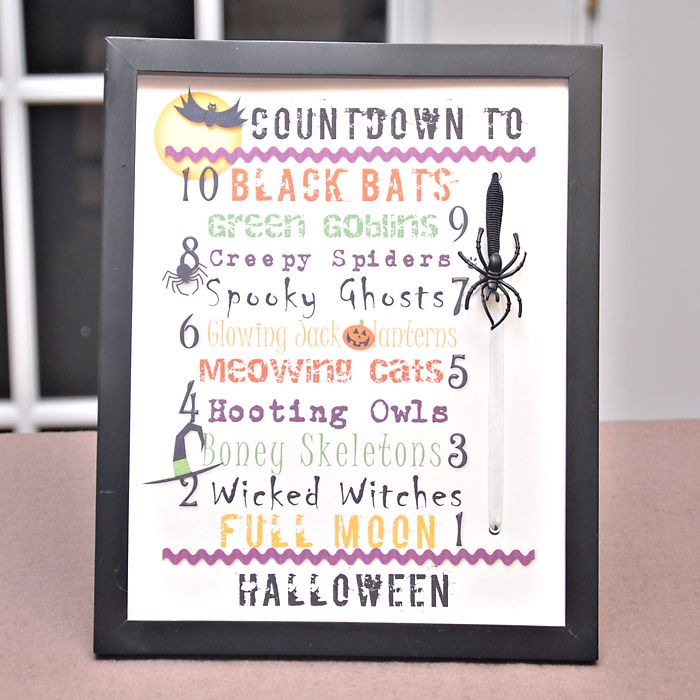 COUNTDOWN TO
10 BLACK BATS
Green Goblins 9
8 Creepy Spiders
Spooky Ghosts 7
6 Glowing Jack lanterns
Meowing Cats 5
4 Hooting Owls
Boney Skeletons 3
2 Wicked Witches
FULL MOON 1
HALLOWEEN